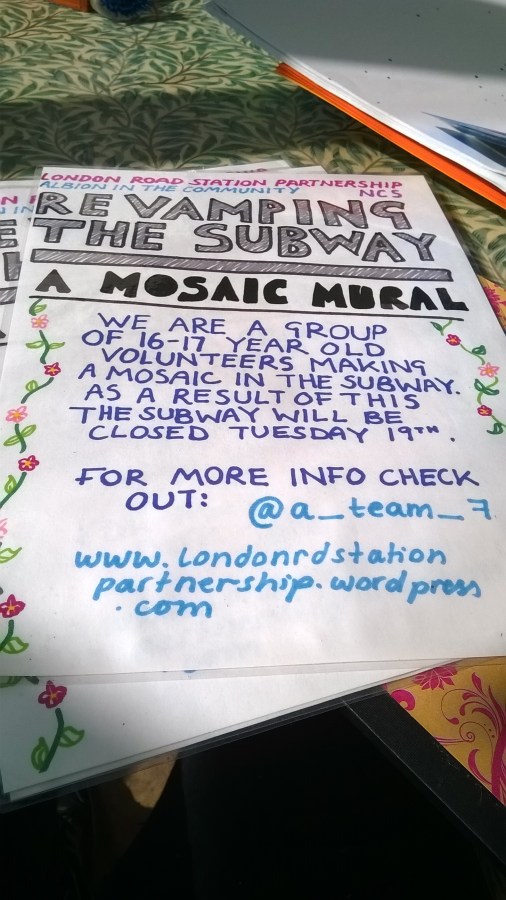 LONDON ROAD STATION PARTNERSHIP
ALBION IN THE COMMUNITY NCS
REVAMPING
THE SUBWAY
A MOSAIC MURAL
WE ARE A GROUP
OF 16-17 YEAR OLD
VOLUNTEERS MAKING
A MOSAIC IN THE SUBWAY.
AS A RESULT OF THIS
THE SUBWAY WILL BE
CLOSED TUESDAY 19TH.
FOR MORE INFO CHECK
OUT: @a_team_7
www.londonrdstation
partnership.wordpress
.com